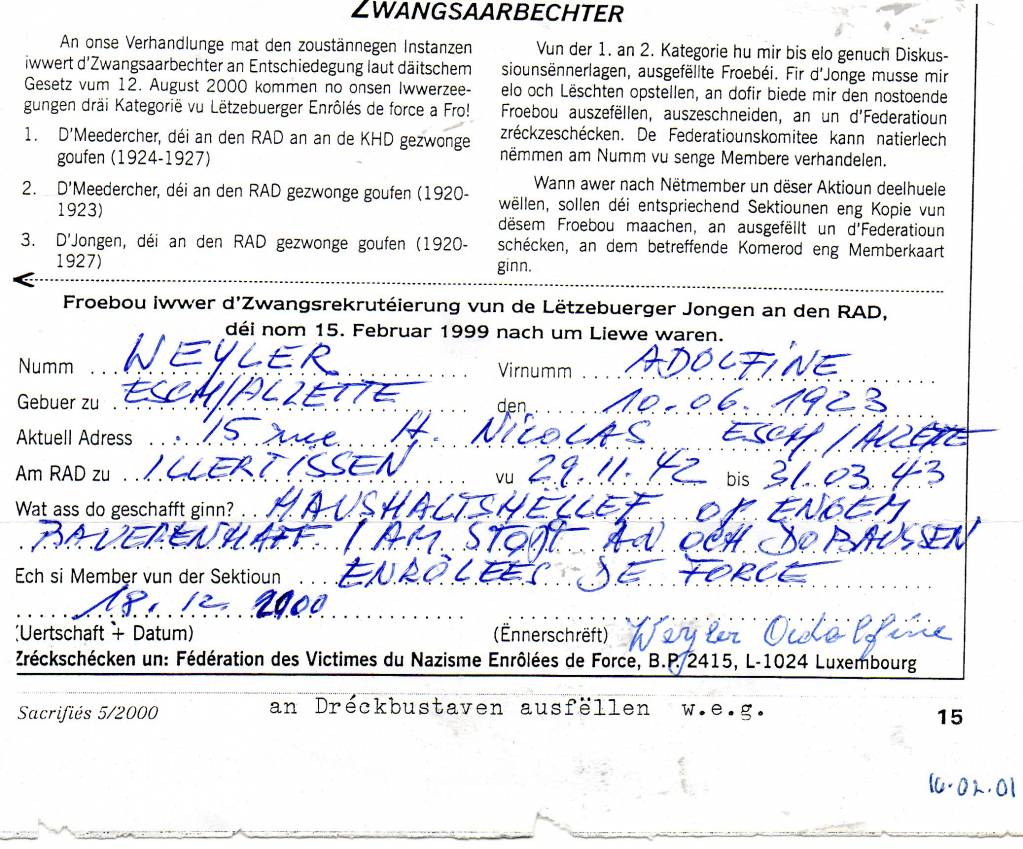 ZWANGSAARBECHTER
An onse Verhandlunge mat den zoustännegen Instanzen
iwwert d'Zwangsaarbechter an Entschiedegung laut däitschem
Gesetz vum 12. August 2000 kommen no onsen Iwwerzee-
gungen dräi Kategorië vu Lëtzebuerger Enrôlés de force a Fro!
1. D'Meedercher, déi an den RAD an an de KHD gezwonge
goufen (1924-1927)
2. D'Meedercher, déi an den RAD gezwonge goufen (1920-
1923)
3. D'Jongen, déi an den RAD gezwonge goufen (1920-
1927)
Vun der 1. an 2. Kategorie hu mir bis elo genuch Diskus-
siounsënnerlagen, ausgefëllte Froebéi. Fir d'Jonge musse mir
elo och Lëschten opstellen, an dofir biede mir den nostoende
Froebou auszefëllen, auszeschneiden, an un d'Federatioun
zréckzeschécken. De Federatiounskomitee kann natierlech
nëmmen am Numm vu senge Membere verhandelen.
Wann awer nach Nëtmember un dëser Aktioun deelhuele
wëllen, sollen déi entspriechend Sektiounen eng Kopie vun
dësem Froebou maachen, an ausgefëllt un d'Federatioun
schécken, an dem betreffende Komerod eng Memberkaart
ginn.
Froebou iwwer d'Zwangsrekrutéierung vun de Lëtzebuerger Jongen an den RAD,
déi nom 15. Februar 1999 nach um Liewe waren.
Numm WEYLER Virnumm ADOLFINE
Gebuer zu ESCH/ALZETTE den 10.06.1923
Aktuell Adress 15 rue H. NICOLAS ESCH/ALZETTE
Am RAD zu ILLERTISSEN vu 29.11.42 bis 31.03.43
Wat ass do geschafft ginn? HAUSHALTSHELLEF OP ENGEM
BAUERENHAFF / AM STOTT AN OCH DOBAUSSEN
Ech si Member vun der Sektioun ENRÔLEES DE FORCE
18.12.2000
(Uertschaft + Datum) (Ënnerschrëft) Weyler
Zréckschécken un: Fédération des Victimes du Nazisme Enrôlées de Force, B.P. 2415, L-1024 Luxembourg
Sacrifiés 5/2000 an Dréckbustaven ausfëllen w.e.g. 15
16.02.01